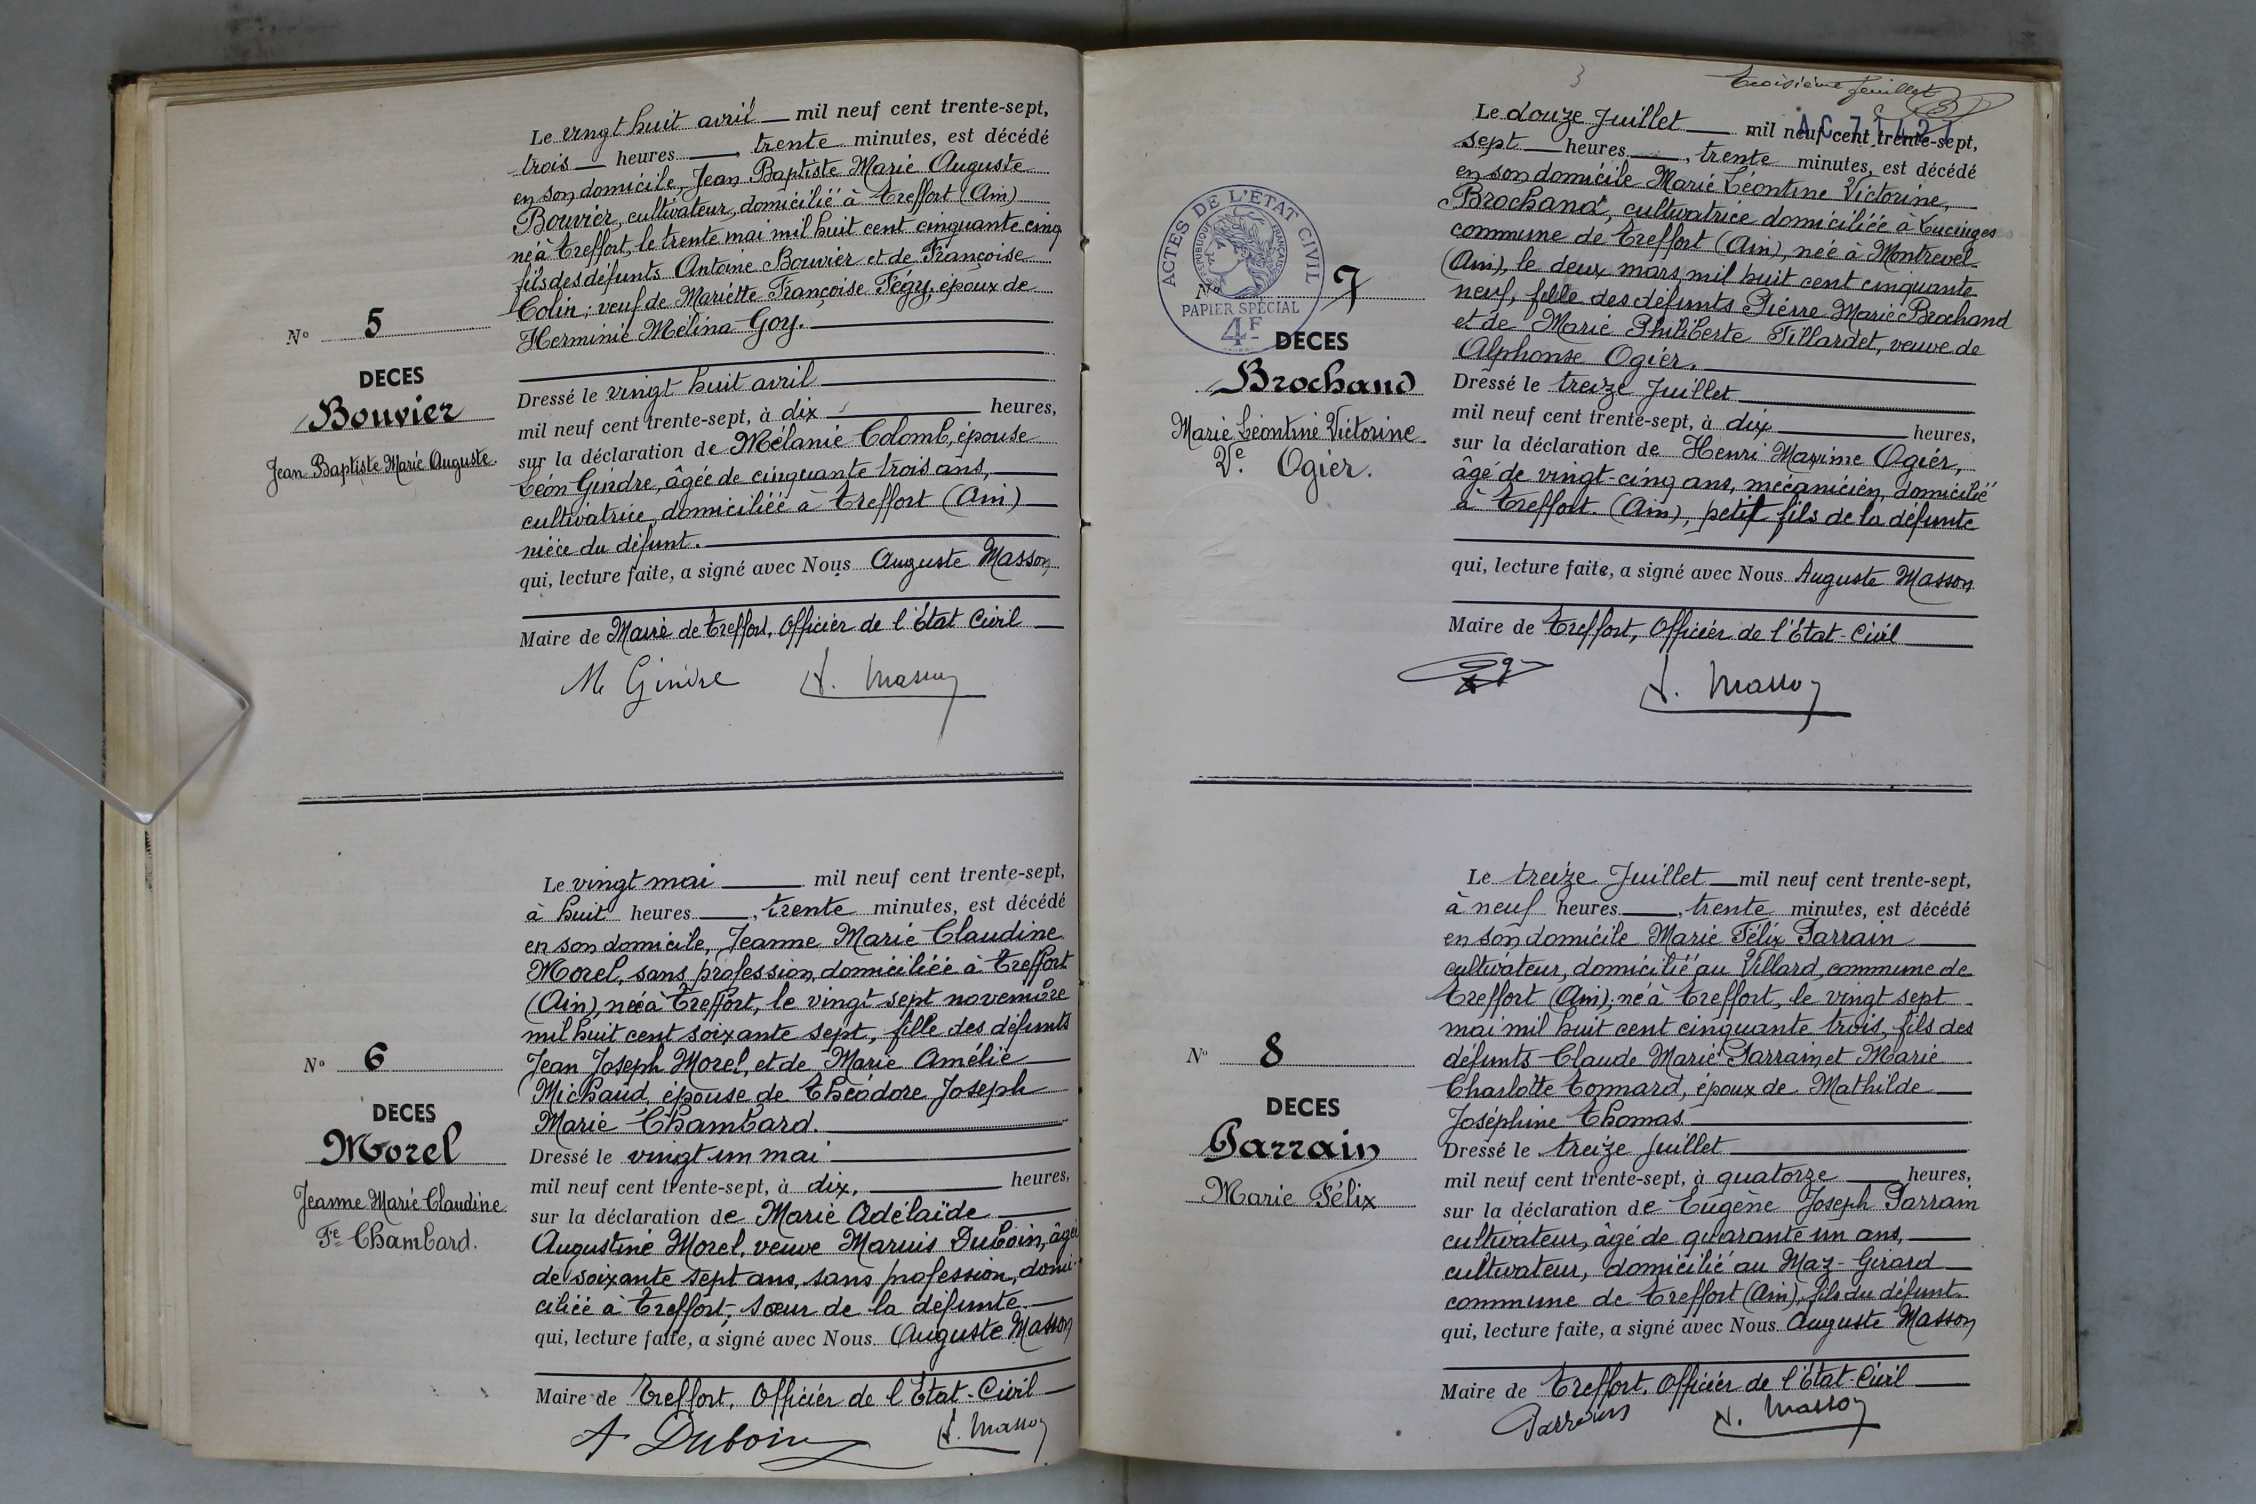 Le vingt huit avril mil neuf cent trente-sept,
trois heures, trente minutes, est décédé
en son domicile, Jean Baptiste Marie Auguste
Bouvier, cultivateur, domicilié à Treffort (Ain)
né à Treffort, le trente mai mil huit cent cinquante cinq
fils des défunts Antoine Bouvier et de Françoise
Colin; veuf de Mariette Françoise Fégy, époux de
Herminie Mélina Goy.
N° 5
DECES
Bouvier
Jean Baptiste Marie Auguste.
Dressé le vingt huit avril
mil neuf cent trente-sept, à dix heures,
sur la déclaration de Mélanie Colomb, épouse
Léon Gindre, âgée de cinquante trois ans,
cultivatrice, domiciliée à Treffort (Ain)
nièce du défunt.
qui, lecture faite, a signé avec Nous Auguste Masson,
Maire de Maire de Treffort, Officier de l'Etat Civil
M Gindre A. Masson
Le vingt mai mil neuf cent trente-sept,
à huit heures, trente minutes, est décédé
en son domicile, Jeanne Marie Claudine
Morel, sans profession, domiciliée à Treffort
(Ain), née à Treffort, le vingt sept novembre
mil huit cent soixante sept, fille des défunts
Jean Joseph Morel, et de Marie Amélie
Michaud, épouse de Théodore Joseph
Marie Chambard.
N° 6
DECES
Morel
Jeanne Marie Claudine
Fe Chambard.
Dressé le vingt un mai
mil neuf cent trente-sept, à dix, heures,
sur la déclaration de Marie Adélaïde
Augustine Morel, veuve Marius Duboin, âgée
de soixante sept ans, sans profession, domi-
ciliée à Treffort, sœur de la défunte.
qui, lecture faite, a signé avec Nous Auguste Masson
Maire de Treffort, Officier de l'Etat-Civil
A Duboin A. Masson
3
troisième feuillet
Le douze Juillet mil neuf cent trente-sept,
sept heures, trente minutes, est décédé
en son domicile Marie Léontine Victorine,
Brochand, cultivatrice domiciliée à Lucinges
commune de Treffort (Ain), née à Montrevel
(Ain), le deux mars mil huit cent cinquante
neuf, fille des défunts Pierre Marie Brochand
et de Marie Philiberte Tillardet, veuve de
Alphonse Ogier.
ACTES DE L'ETAT CIVIL
REPUBLIQUE FRANÇAISE
PAPIER SPECIAL
4F
N° 7
DECES
Brochand
Marie Léontine Victorine
Ve. Ogier.
Dressé le treize Juillet
mil neuf cent trente-sept, à dix heures,
sur la déclaration de Henri Maxime Ogier,
âgé de vingt-cinq ans, mécanicien, domicilié
à Treffort (Ain), petit fils de la défunte
qui, lecture faite, a signé avec Nous Auguste Masson
Maire de Treffort, Officier de l'Etat-Civil
A. Masson
Le treize Juillet mil neuf cent trente-sept,
à neuf heures, trente minutes, est décédé
en son domicile Marie Félix Parrain
cultivateur, domicilié au Villard, commune de
Treffort (Ain); né à Treffort, le vingt sept
mai mil huit cent cinquante trois, fils des
défunts Claude Marie Parrain et Marie
Charlotte Tonnard, époux de Mathilde
Joséphine Thomas.
N° 8
DECES
Parrain
Marie Félix
Dressé le treize juillet
mil neuf cent trente-sept, à quatorze heures,
sur la déclaration de Eugène Joseph Parrain
cultivateur, âgé de quarante un ans,
cultivateur, domicilié au Maz-Girard
commune de Treffort (Ain), fils du défunt.
qui, lecture faite, a signé avec Nous Auguste Masson
Maire de Treffort, Officier de l'Etat-Civil
Parrain A. Masson